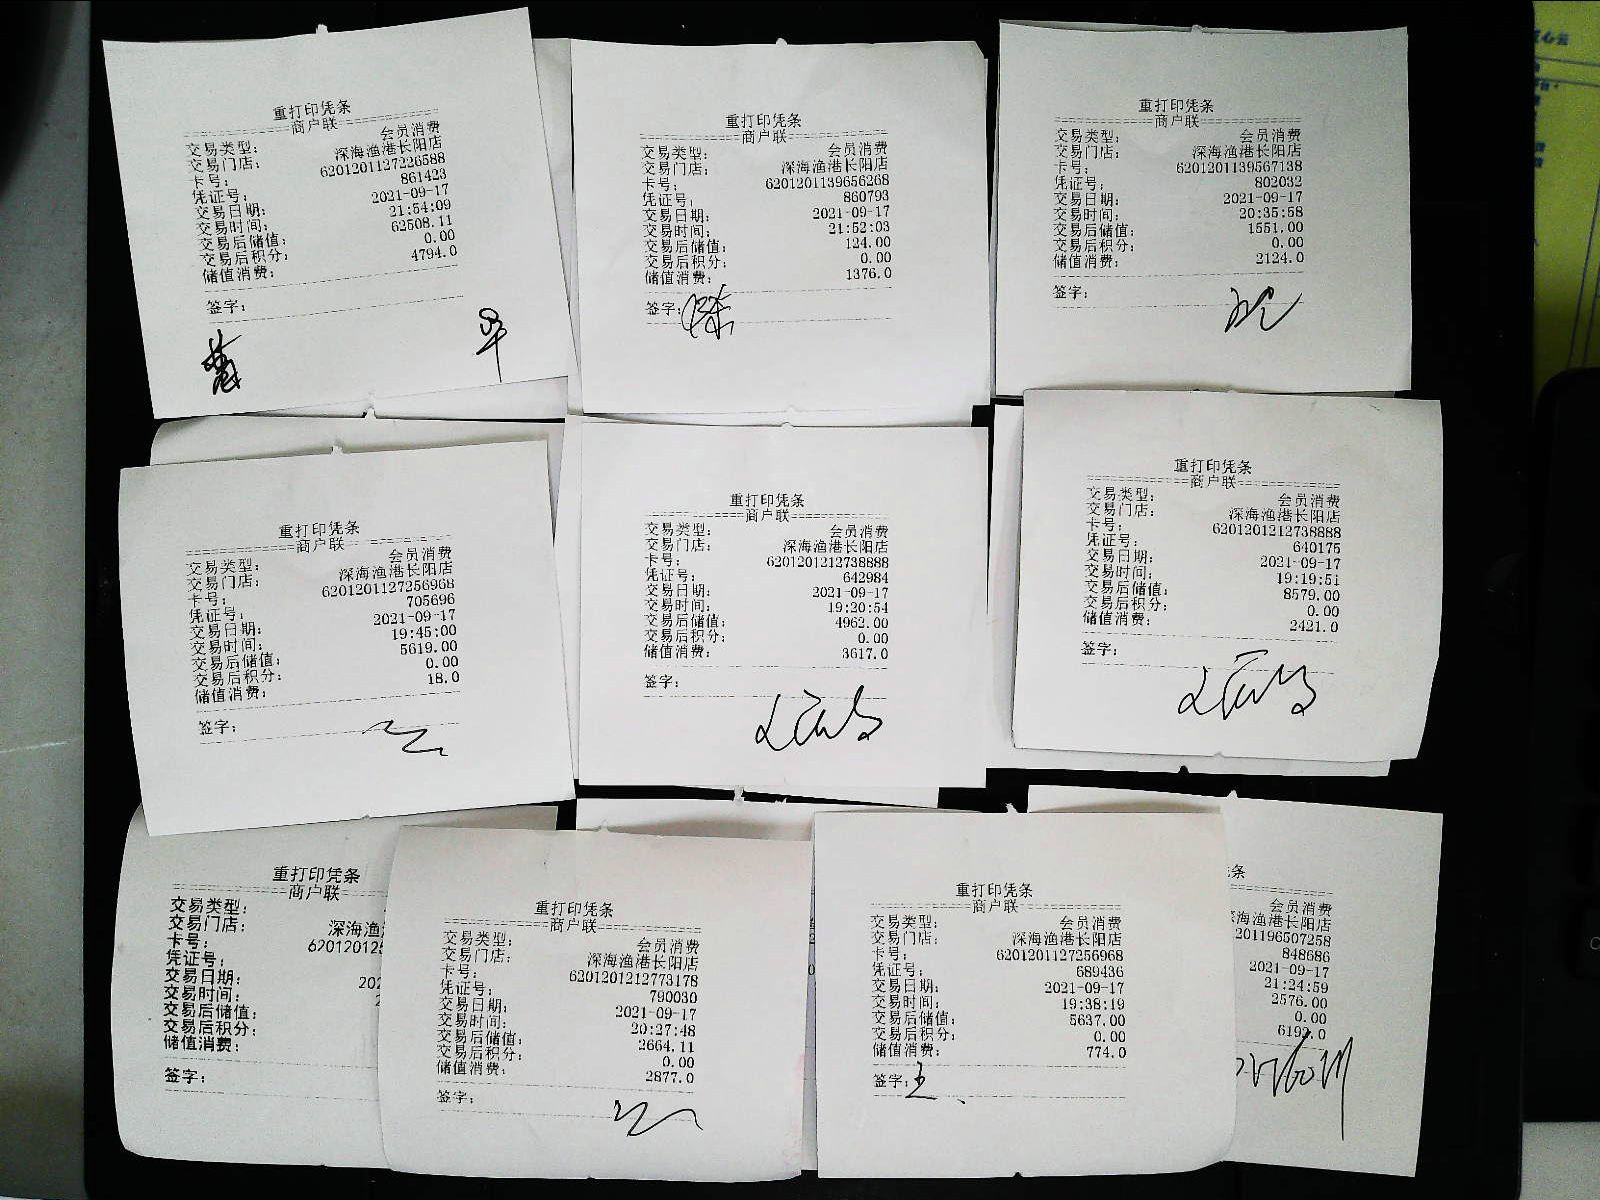 重打印凭条
商户联
交易类型: 会员消费
交易门店: 深海渔港长阳店
卡号: 6201201127226588
凭证号: 861423
交易日期: 2021-09-17
交易时间: 21:54:09
交易后储值: 62508.11
交易后积分: 0.00
储值消费: 4794.0
签字:
重打印凭条
商户联
交易类型: 会员消费
交易门店: 深海渔港长阳店
卡号: 6201201139656268
凭证号: 860793
交易日期: 2021-09-17
交易时间: 21:52:03
交易后储值: 124.00
交易后积分: 0.00
储值消费: 1376.0
签字:
重打印凭条
商户联
交易类型: 会员消费
交易门店: 深海渔港长阳店
卡号: 6201201139567138
凭证号: 802032
交易日期: 2021-09-17
交易时间: 20:35:58
交易后储值: 1551.00
交易后积分: 0.00
储值消费: 2124.0
签字:
重打印凭条
商户联
交易类型: 会员消费
交易门店: 深海渔港长阳店
卡号: 6201201127256968
凭证号: 705696
交易日期: 2021-09-17
交易时间: 19:45:00
交易后储值: 5619.00
交易后积分: 0.00
储值消费: 18.0
签字:
重打印凭条
商户联
交易类型: 会员消费
交易门店: 深海渔港长阳店
卡号: 6201201212738888
凭证号: 642984
交易日期: 2021-09-17
交易时间: 19:20:54
交易后储值: 4962.00
交易后积分: 0.00
储值消费: 3617.0
签字:
重打印凭条
商户联
交易类型: 会员消费
交易门店: 深海渔港长阳店
卡号: 6201201212738888
凭证号: 640175
交易日期: 2021-09-17
交易时间: 19:19:51
交易后储值: 8579.00
交易后积分: 0.00
储值消费: 2421.0
签字:
重打印凭条
商户联
交易类型:
交易门店: 深海
卡号: 620120125
凭证号:
交易日期: 202
交易时间: 2
交易后储值:
交易后积分:
储值消费:
签字:
重打印凭条
商户联
交易类型: 会员消费
交易门店: 深海渔港长阳店
卡号: 6201201212773178
凭证号: 790030
交易日期: 2021-09-17
交易时间: 20:27:48
交易后储值: 2664.11
交易后积分: 0.00
储值消费: 2877.0
签字:
重打印凭条
商户联
交易类型: 会员消费
交易门店: 深海渔港长阳店
卡号: 6201201127256968
凭证号: 689436
交易日期: 2021-09-17
交易时间: 19:38:19
交易后储值: 5637.00
交易后积分: 0.00
储值消费: 774.0
签字: 王
条
会员消费
深海渔港长阳店
201196507258
848686
2021-09-17
21:24:59
2576.00
0.00
6192.0